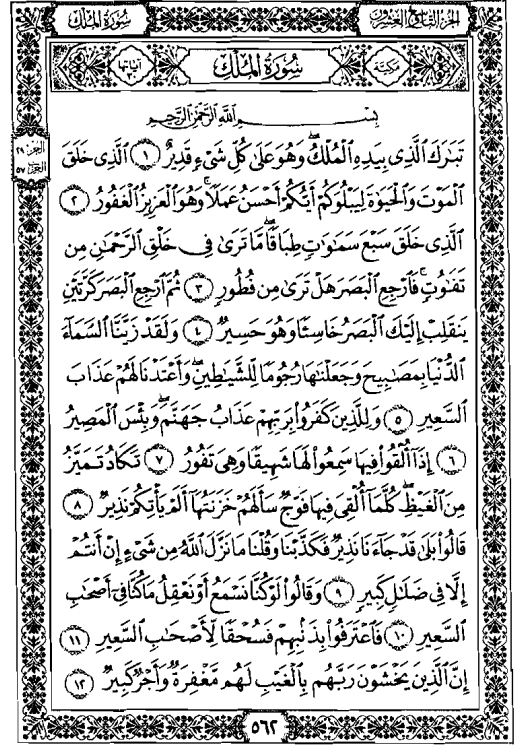 الجزء التاسع والعشرون
سورة الملك
مكية
سُورَةُ المُلْكِ
آياتها ٣٠
بِسْمِ اللَّهِ الرَّحْمَٰنِ الرَّحِيمِ
تَبَارَكَ الَّذِي بِيَدِهِ الْمُلْكُ وَهُوَ عَلَىٰ كُلِّ شَيْءٍ قَدِيرٌ ١ الَّذِي خَلَقَ
الْمَوْتَ وَالْحَيَوٰةَ لِيَبْلُوَكُمْ أَيُّكُمْ أَحْسَنُ عَمَلًا ۚ وَهُوَ الْعَزِيزُ الْغَفُورُ ٢
الَّذِي خَلَقَ سَبْعَ سَمَٰوَٰتٍ طِبَاقًا ۖ مَّا تَرَىٰ فِي خَلْقِ الرَّحْمَٰنِ مِن
تَفَٰوُتٍ ۖ فَارْجِعِ الْبَصَرَ هَلْ تَرَىٰ مِن فُطُورٍ ٣ ثُمَّ ارْجِعِ الْبَصَرَ كَرَّتَيْنِ
يَنقَلِبْ إِلَيْكَ الْبَصَرُ خَاسِئًا وَهُوَ حَسِيرٌ ٤ وَلَقَدْ زَيَّنَّا السَّمَاءَ
الدُّنْيَا بِمَصَٰبِيحَ وَجَعَلْنَٰهَا رُجُومًا لِّلشَّيَٰطِينِ ۖ وَأَعْتَدْنَا لَهُمْ عَذَابَ
السَّعِيرِ ٥ وَلِلَّذِينَ كَفَرُوا بِرَبِّهِمْ عَذَابُ جَهَنَّمَ ۖ وَبِئْسَ الْمَصِيرُ
٦ إِذَا أُلْقُوا فِيهَا سَمِعُوا لَهَا شَهِيقًا وَهِيَ تَفُورُ ٧ تَكَادُ تَمَيَّزُ
مِنَ الْغَيْظِ ۖ كُلَّمَا أُلْقِيَ فِيهَا فَوْجٌ سَأَلَهُمْ خَزَنَتُهَا أَلَمْ يَأْتِكُمْ نَذِيرٌ ٨
قَالُوا بَلَىٰ قَدْ جَاءَنَا نَذِيرٌ فَكَذَّبْنَا وَقُلْنَا مَا نَزَّلَ اللَّهُ مِن شَيْءٍ إِنْ أَنتُمْ
إِلَّا فِي ضَلَٰلٍ كَبِيرٍ ٩ وَقَالُوا لَوْ كُنَّا نَسْمَعُ أَوْ نَعْقِلُ مَا كُنَّا فِي أَصْحَٰبِ
السَّعِيرِ ١٠ فَاعْتَرَفُوا بِذَنبِهِمْ فَسُحْقًا لِّأَصْحَٰبِ السَّعِيرِ ١١
إِنَّ الَّذِينَ يَخْشَوْنَ رَبَّهُم بِالْغَيْبِ لَهُم مَّغْفِرَةٌ وَأَجْرٌ كَبِيرٌ ١٢
الجزء ٢٩
الحزب ٥٧
٥٦٢